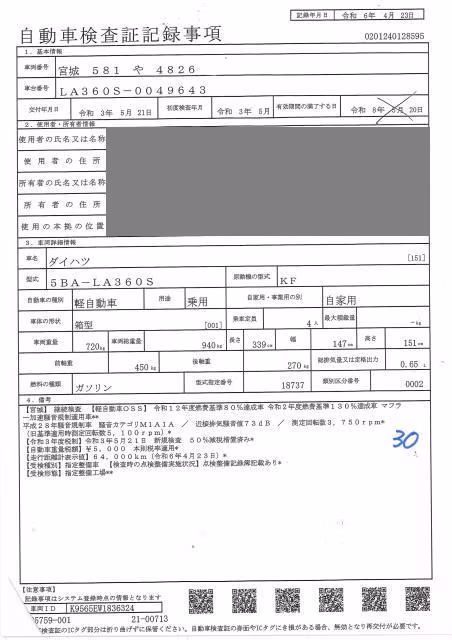 記録年月日 令和 6年 4月 23日
自動車検査証記録事項 0201240128595
1.基本情報
車両番号 宮城 581 や 4826
車台番号 LA360S-0049643
交付年月日 令和 3年 5月 21日 初度検査年月 令和 3年 5月 有効期間の満了する日 令和 8年 5月 20日
2.使用者・所有者情報
使用者の氏名又は名称
使用者の住所
所有者の氏名又は名称
所有者の住所
使用の本拠の位置
3.車両詳細情報
車名 ダイハツ [151]
型式 5BA-LA360S 原動機の型式 KF
自動車の種別 軽自動車 用途 乗用 自家用・事業用の別 自家用
車体の形状 箱型 [001] 乗車定員 4人 最大積載量 -kg
車両重量 720kg 車両総重量 940kg 長さ 339cm 幅 147cm 高さ 151cm
前軸重 450kg 後軸重 270kg 総排気量又は定格出力 0.65 L
燃料の種類 ガソリン 型式指定番号 18737 類別区分番号 0002
4.備考
【宮城】 継続検査 【軽自動車OSS】 令和12年度燃費基準80%達成車 令和2年度燃費基準130%達成車 マフラ
ー加速騒音規制適用車**
平成28年騒音規制車 騒音カテゴリM1A1A / 近接排気騒音値73dB / 測定回転数3,750rpm**
(旧基準適用時測定回転数5,100rpm)*
【令和3年度税制】令和3年5月21日 新規検査 50%減税措置済み*
【自動車重量税額】¥5,000 本則税率適用*
【走行距離計表示値】64,000km(令和6年4月23日)*
【受検種別】指定整備車 【検査時の点検整備実施状況】点検整備記録簿記載あり*
【受検形態】指定整備工場**
30
【注意事項】
記録事項はシステム登録時点の情報となります
車両ID K9565EW1836324
05759-001 21-00713
検査証のICタグ部分は折り曲げずに保管ください。自動車検査証の券面やICタグに汚損がある場合、無効となり再交付が必要です。